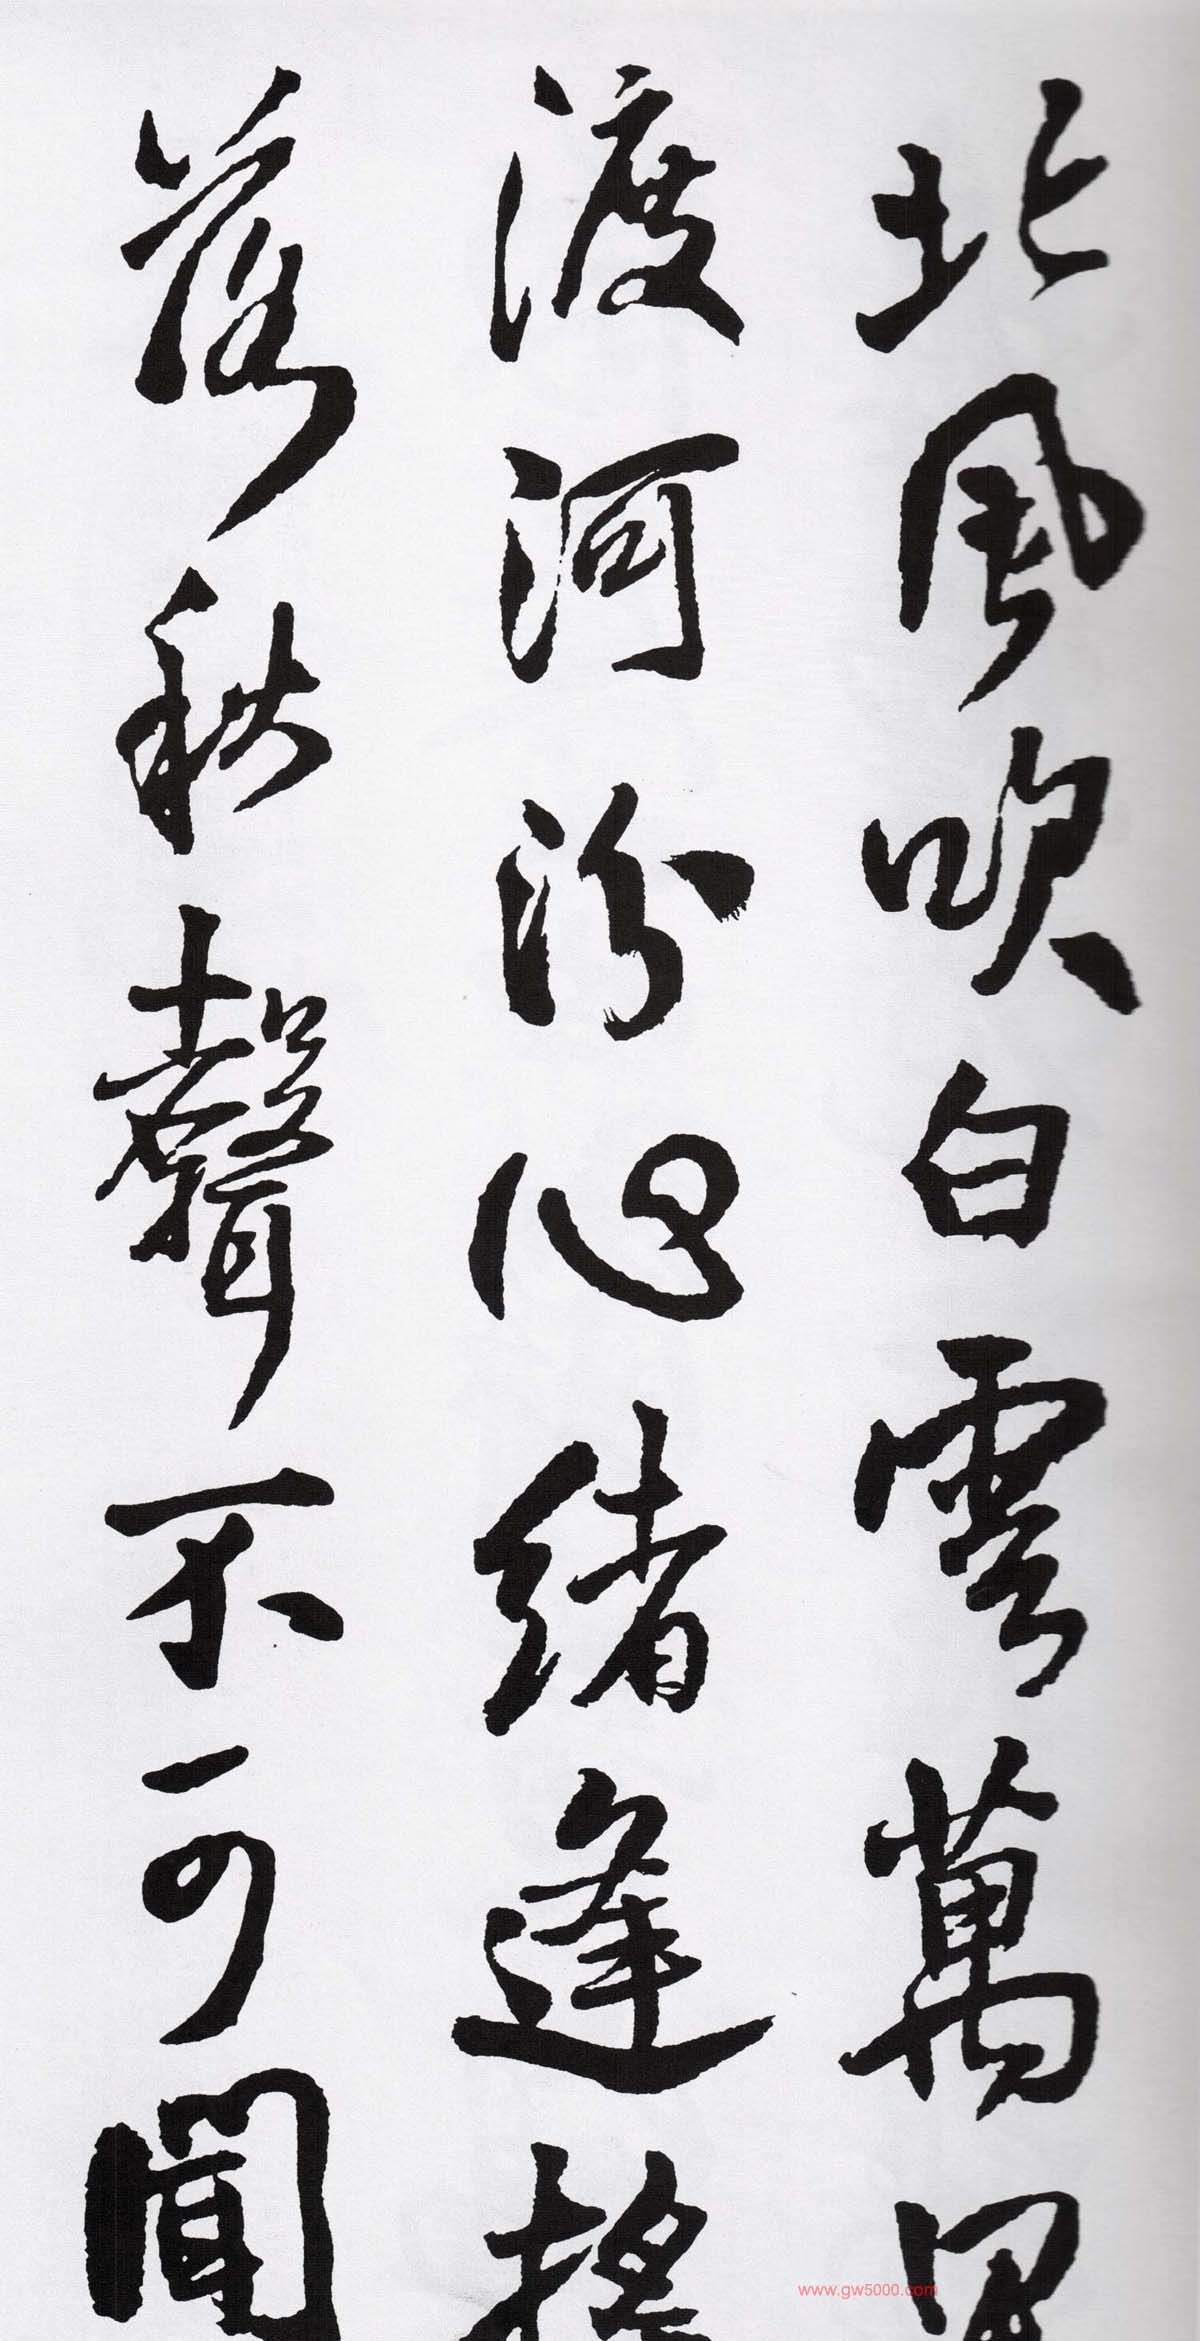 北風吹白雲萬里
渡河汾心緒逢搖
落秋聲不可聞
www.gw5000.com